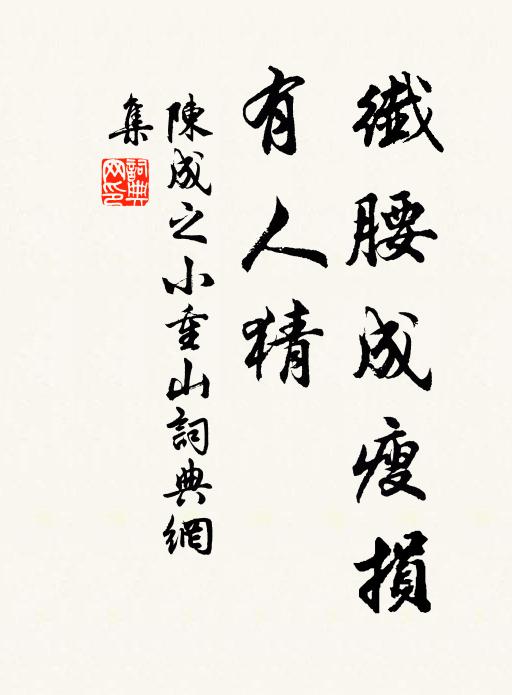 纖腰成瘦損
有人猜
陳成之小重山詞典網
集
詞典网印